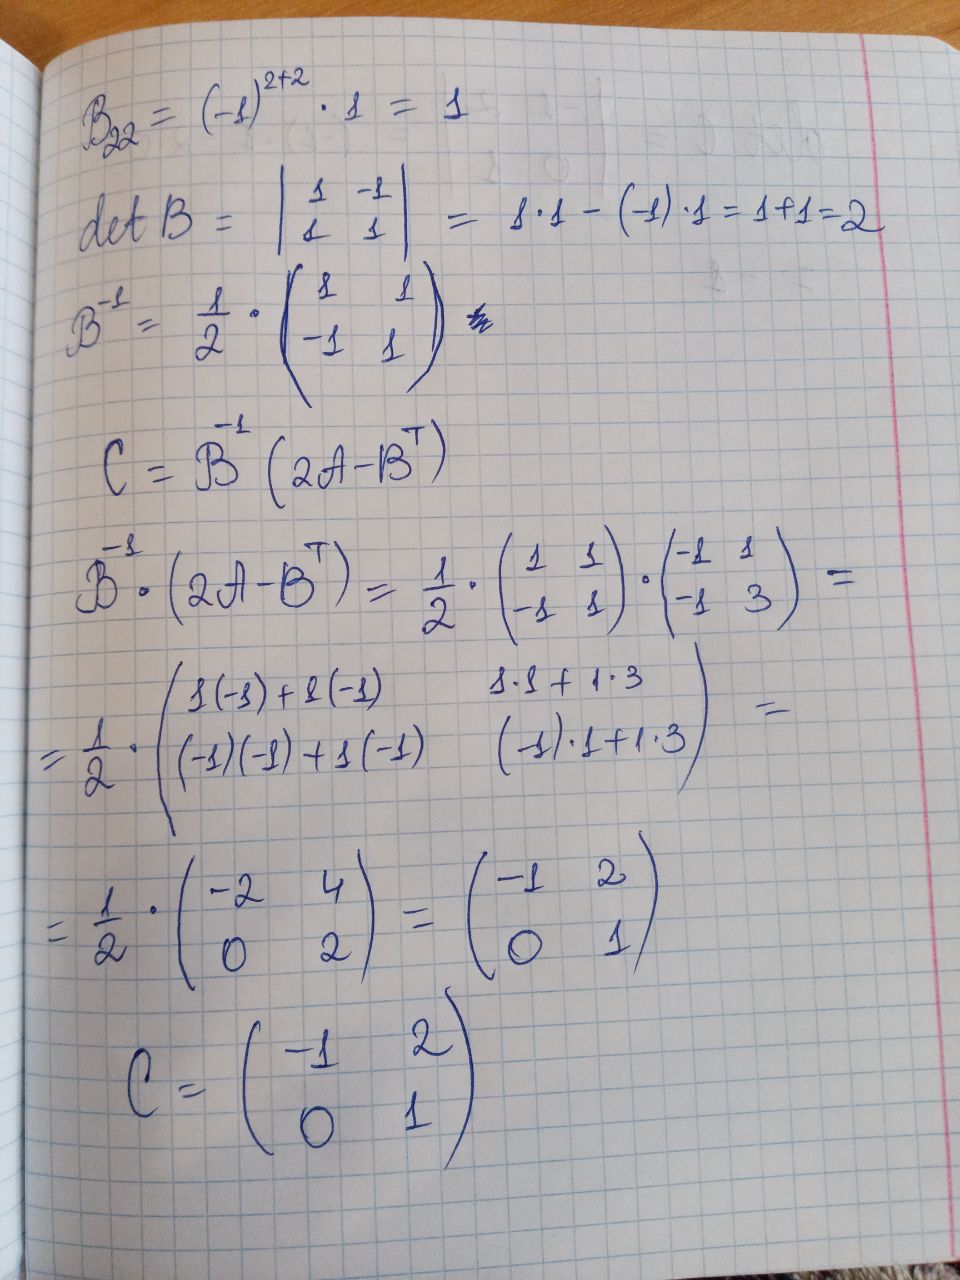 B₂₂ = (-1)²⁺² · 1 = 1
det B = | 1 -1 ; 1 1 | = 1·1 - (-1)·1 = 1+1 = 2
B⁻¹ = 1/2 · ( 1 1 ; -1 1 )
C = B⁻¹ (2A - Bᵀ)
B⁻¹ · (2A - Bᵀ) = 1/2 · ( 1 1 ; -1 1 ) · ( -1 1 ; -1 3 ) =
= 1/2 · ( 1(-1) + 1(-1) 1·1 + 1·3 ; (-1)(-1) + 1(-1) (-1)·1 + 1·3 ) =
= 1/2 · ( -2 4 ; 0 2 ) = ( -1 2 ; 0 1 )
C = ( -1 2 ; 0 1 )